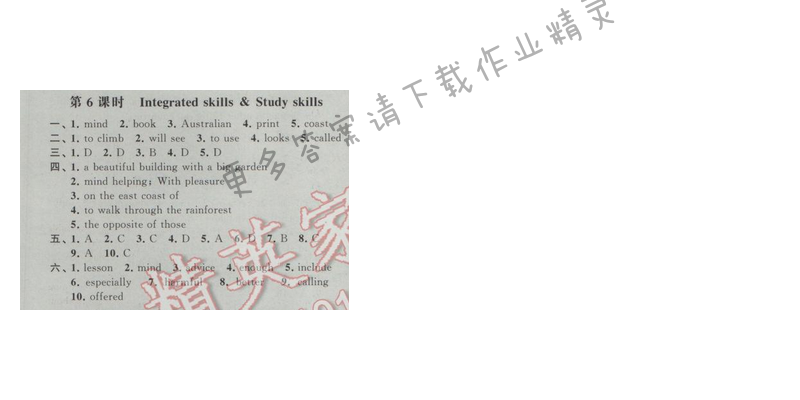 第6课时 Integrated skills & Study skills
一、1. mind 2. book 3. Australian 4. print 5. coast
二、1. to climb 2. will see 3. to use 4. looks 5. called
三、1. D 2. D 3. B 4. D 5. D
四、1. a beautiful building with a big garden
2. mind helping; With pleasure
3. on the east coast of
4. to walk through the rainforest
5. the opposite of those
五、1. A 2. C 3. C 4. D 5. A 6. D 7. B 8. C
9. A 10. C
六、1. lesson 2. mind 3. advice 4. enough 5. include
6. especially 7. harmful 8. better 9. calling
10. offered
更多答案请下载作业精灵
精英家